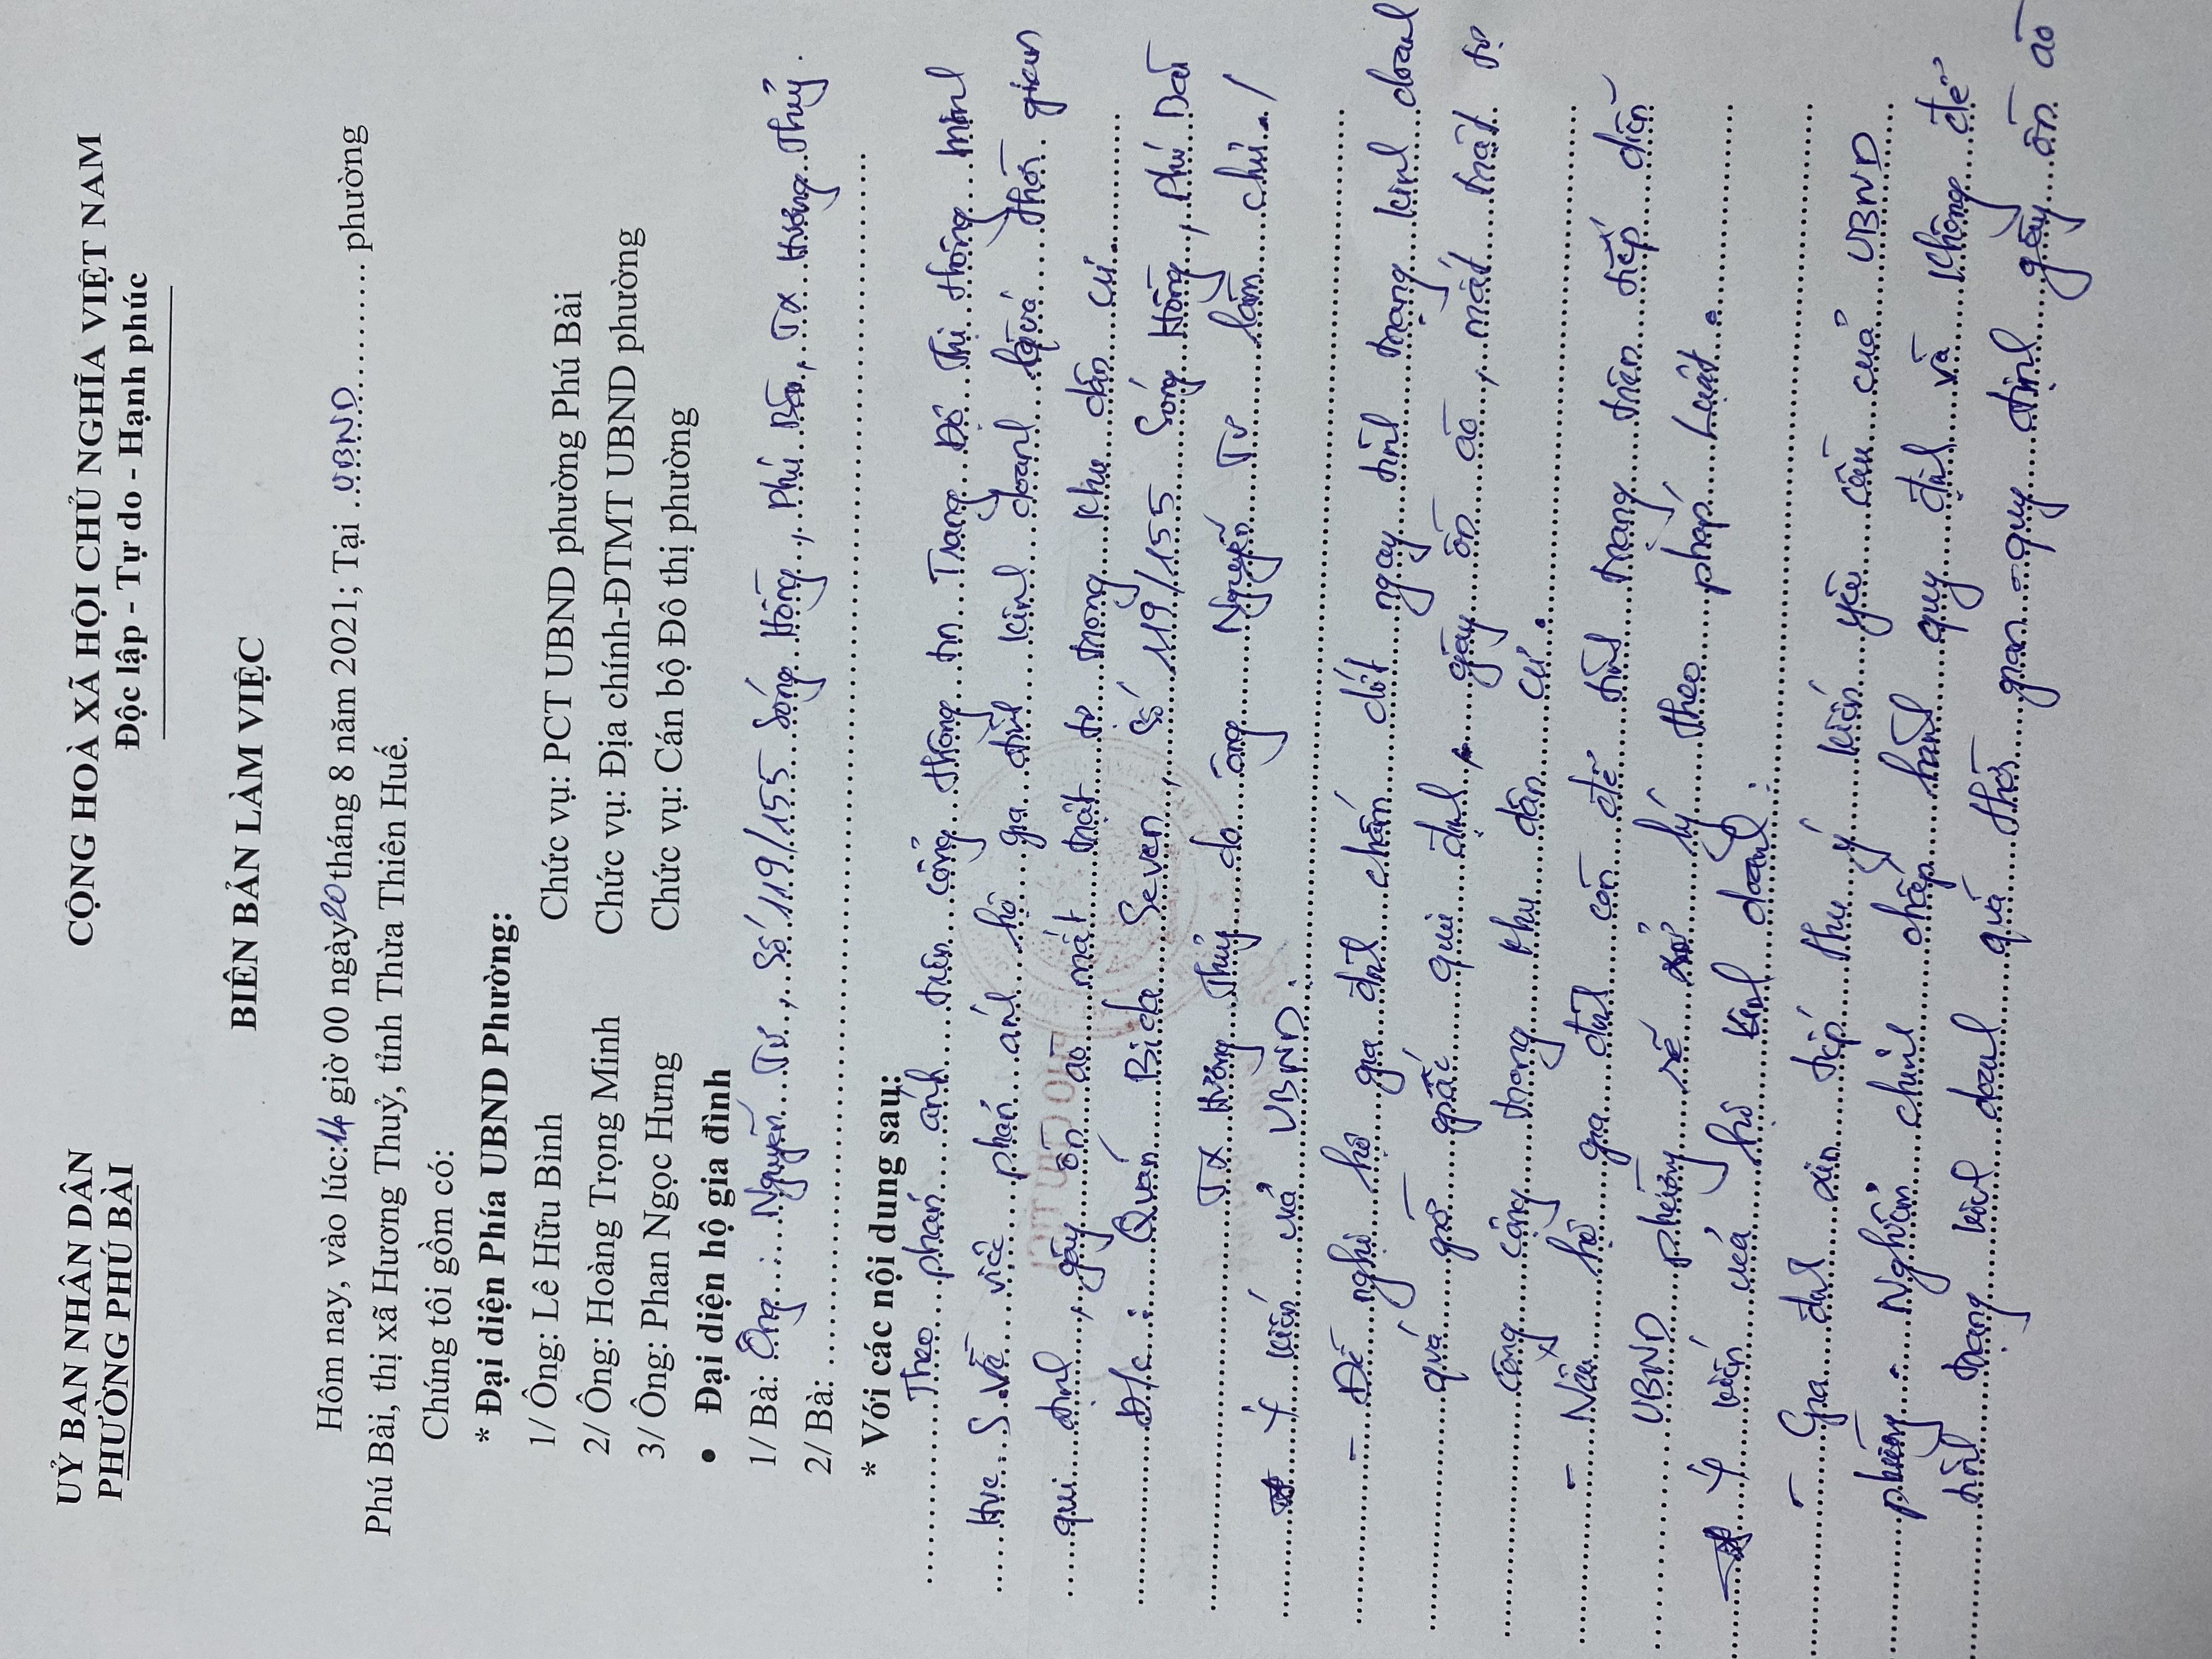 UỶ BAN NHÂN DÂN
PHƯỜNG PHÚ BÀI
CỘNG HOÀ XÃ HỘI CHỦ NGHĨA VIỆT NAM
Độc lập - Tự do - Hạnh phúc
BIÊN BẢN LÀM VIỆC
Hôm nay, vào lúc: 14 giờ 00 ngày 20 tháng 8 năm 2021; Tại .UBND.......... phường
Phú Bài, thị xã Hương Thuỷ, tỉnh Thừa Thiên Huế.
Chúng tôi gồm có:
* Đại diện Phía UBND Phường:
1/ Ông: Lê Hữu Bình Chức vụ: PCT UBND phường Phú Bài
2/ Ông: Hoàng Trọng Minh Chức vụ: Địa chính-ĐTMT UBND phường
3/ Ông: Phan Ngọc Hưng Chức vụ: Cán bộ Đô thị phường
• Đại diện hộ gia đình
1/ Bà: Ông: Nguyễn Tư, Số 119/155 Sóng Hồng, Phú Bài, TX Hương Thủy.
2/ Bà:
* Với các nội dung sau:
Theo phản ánh trên cổng thông tin Trang Đô Thị thông minh
Hue S. Về việc phản ánh hộ gia đình kinh doanh quá thời gian
qui định, gây ồn ào mất trật tự trong khu dân cư.
Đ/c: Quán Bida Seven, số 119/155 Sóng Hồng, Phú Bài
TX Hương Thủy do ông Nguyễn Tư làm chủ./
Ý kiến của UBND:
- Đề nghị hộ gia đình chấm dứt ngay tình trạng kinh doanh
quá giờ giấc qui định, gây ồn ào, mất trật tự
công cộng trong khu dân cư.
- Nếu hộ gia đình còn để tình trạng trên tiếp diễn
UBND phường sẽ xử lý theo pháp Luật.
Ý kiến của hộ kinh doanh:
- Gia đình xin tiếp thu ý kiến yêu cầu của UBND
phường. Nghiêm chỉnh chấp hành quy định và không để
tình trạng kinh doanh quá thời gian quy định gây ồn ào